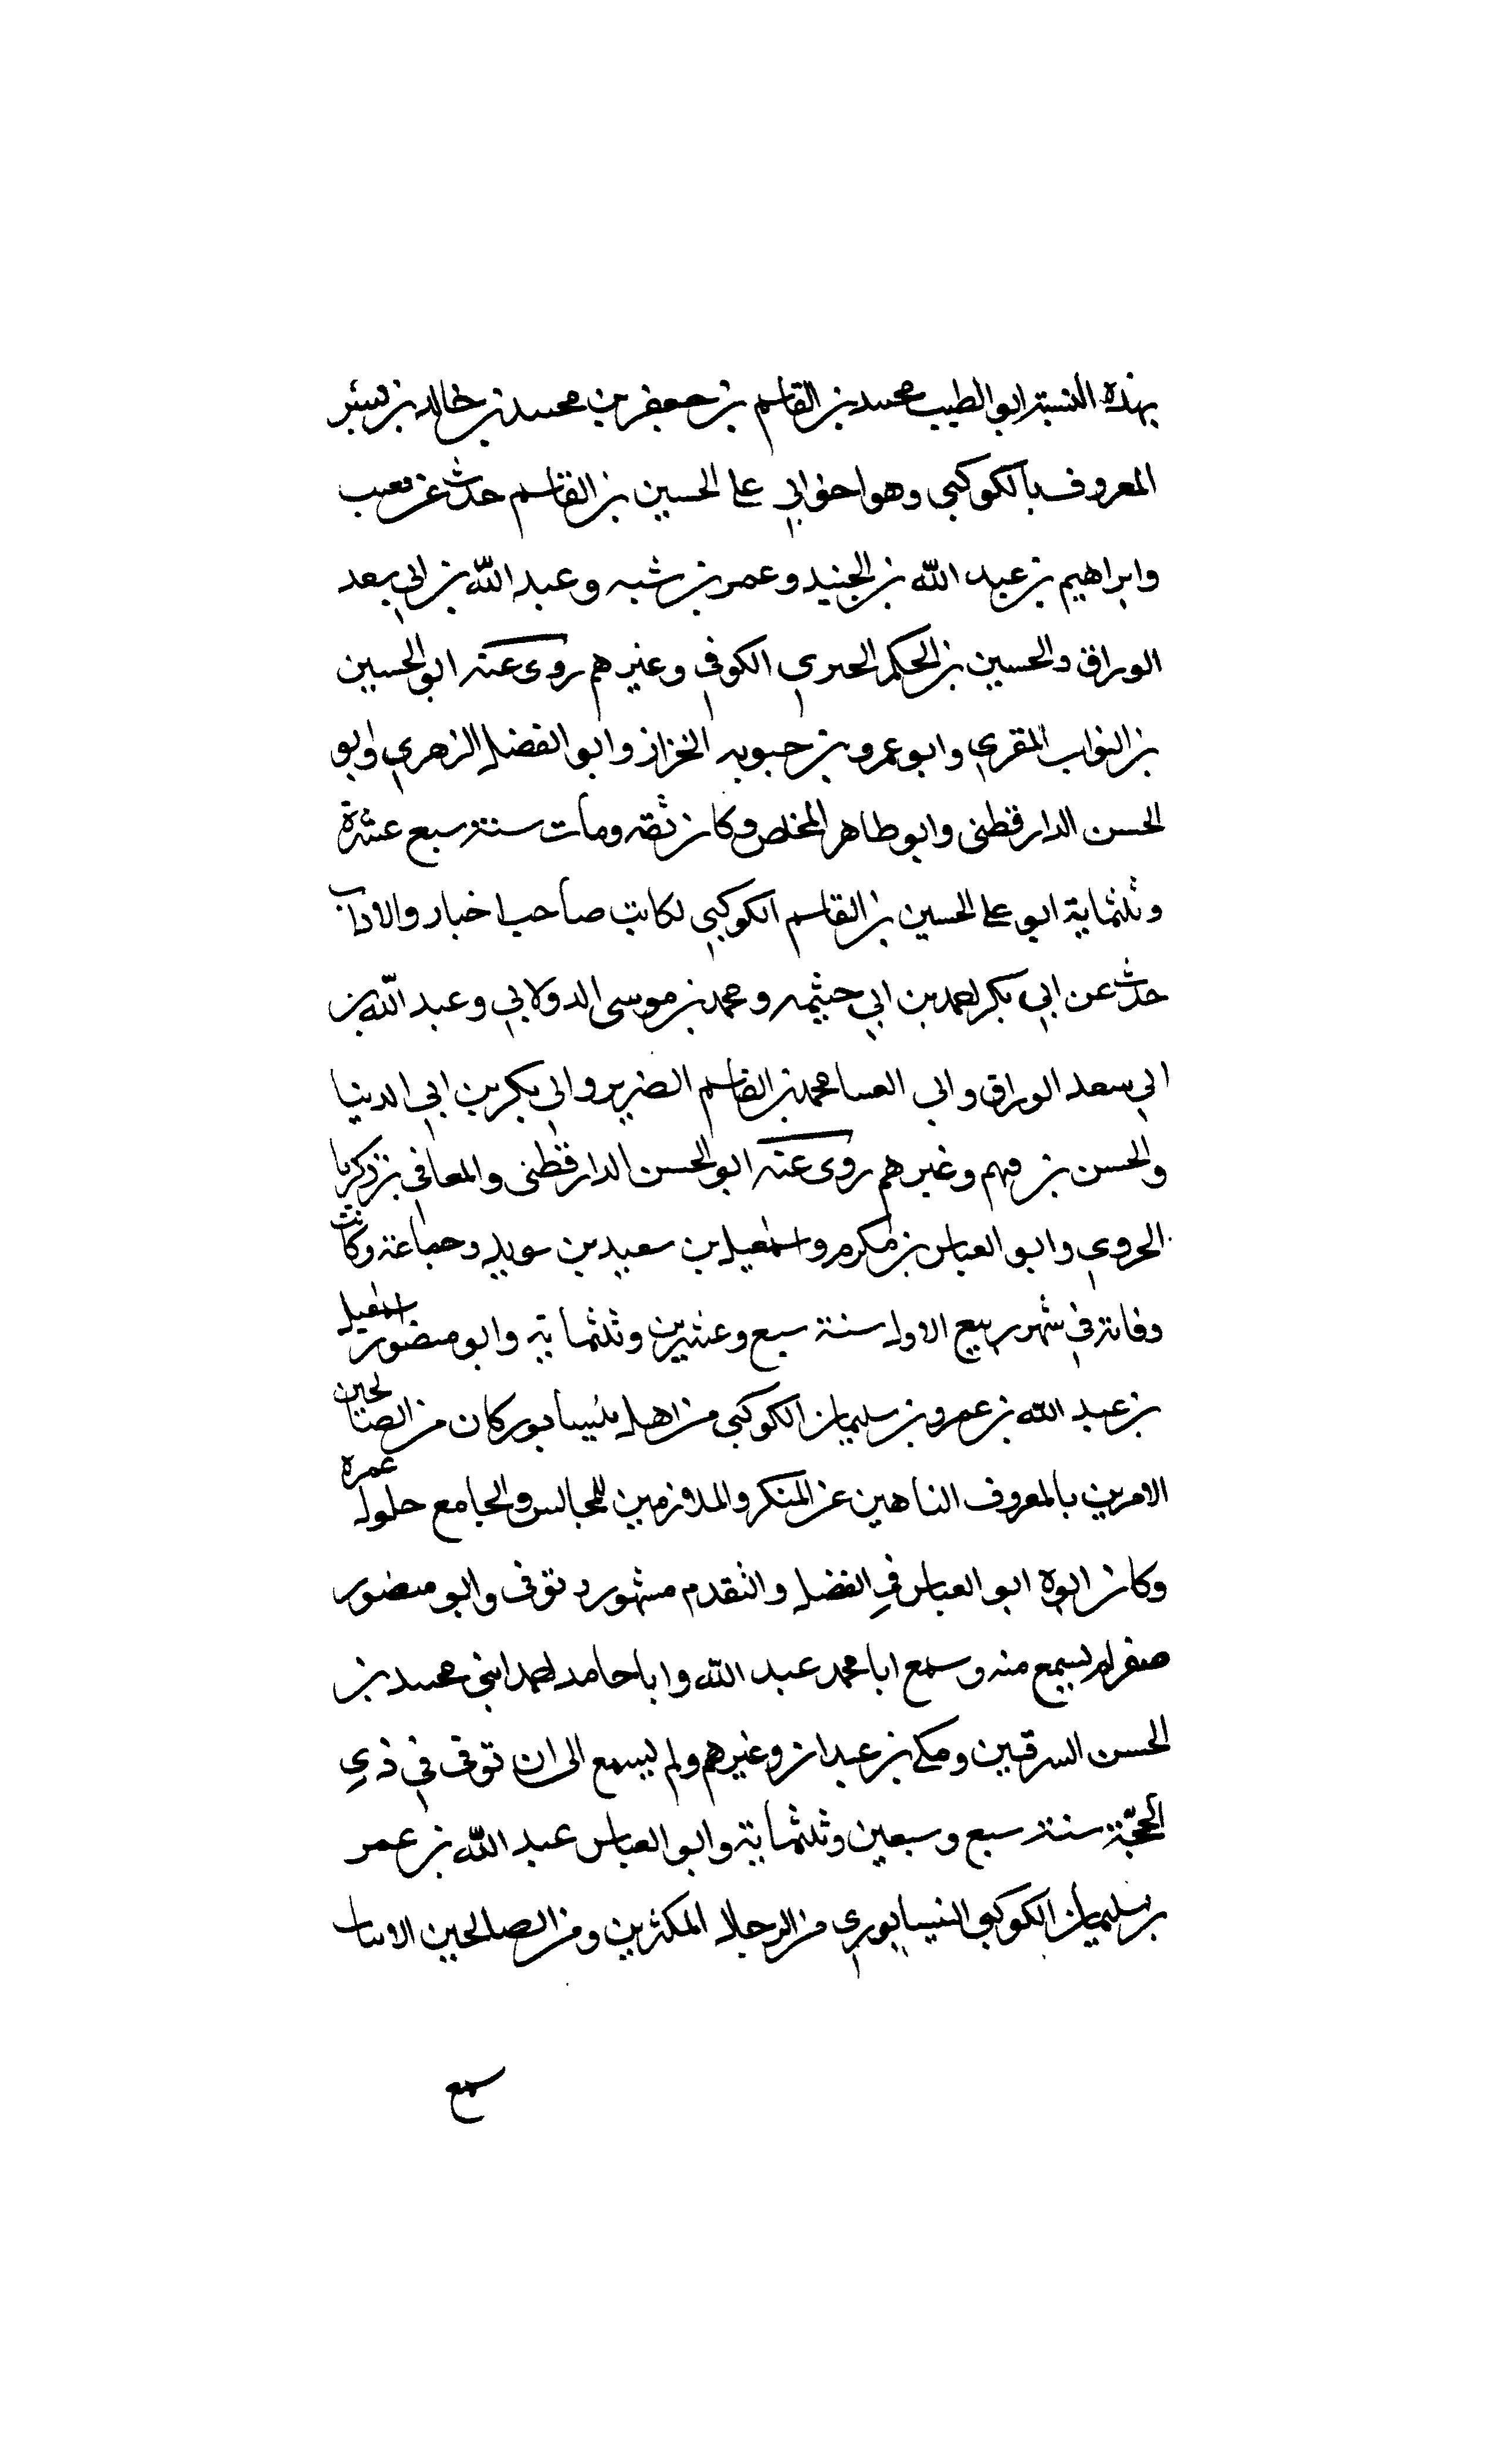 بهذه النسبة ابو الطيب محمد بن القاسم بن جعفر بن محمد بن خالد بن بشر
المعروف بالكوكبي وهو اخو ابي على الحسين بن القاسم حدث عن قعنب
وابراهيم بن عبد الله بن الجنيد وعمر بن شبه وعبد الله بن ابي سعد
الوراق والحسين بن الحكم الحبري الكوفي وغيرهم روى عنه ابو الحسين
بن البواب المقري وابو عمرو بن حيويه الخزاز وابو الفضل الزهري وابو
الحسن الدارقطنى وابو طاهر المخلص وكان ثقه ومات سنة سبع عشرة
وثلثماية ابو على الحسين بن القاسم الكوكبي لكاتب صاحب اخبار والاداب
حدث عن ابي بكر احمد بن ابي خيثمه ومحمد بن موسى الدولابي وعبد الله بن
ابي سعد الوراق وابي العينا محمد بن القاسم الضرير وابي بكر بن ابي الدنيا
والحسن بن فهم وغيرهم روى عنه ابو الحسن الدارقطنى والمعافى بن زكريا
الجروي وابو العباس بن مكرم واسمعيل بن سعيد بن سويد وجماعة وكانت
وفاته في شهر ربيع الاول سنة سبع وعشرين وثلثماية وابو منصور اسمعيل
بن عبد الله بن عمرو بن سليمان الكوكبي من اهل نيسابور كان من الصالحين
الامرين بالمعروف الناهين عن المنكر والملازمين للمجالس والجامع طول عمره
وكان ابوه ابو العباس في الفضل والتقدم مشهور د توفى وابو منصور
صغر لم يسمع منه وسمع ابا محمد عبد الله وابا حامد احمد ابني محمد بن
الحسن الشرقيين ومكي بن عبدان وغيرهم ولم يسمع الى ان توفى في ذي
الحجة سنة سبع وسبعين وثلثماية وابو العباس عبد الله بن عمر
بن سليمان الكوكبي النيسابوري من الرجال المكثرين ومن الصالحين الاثبات
سمع